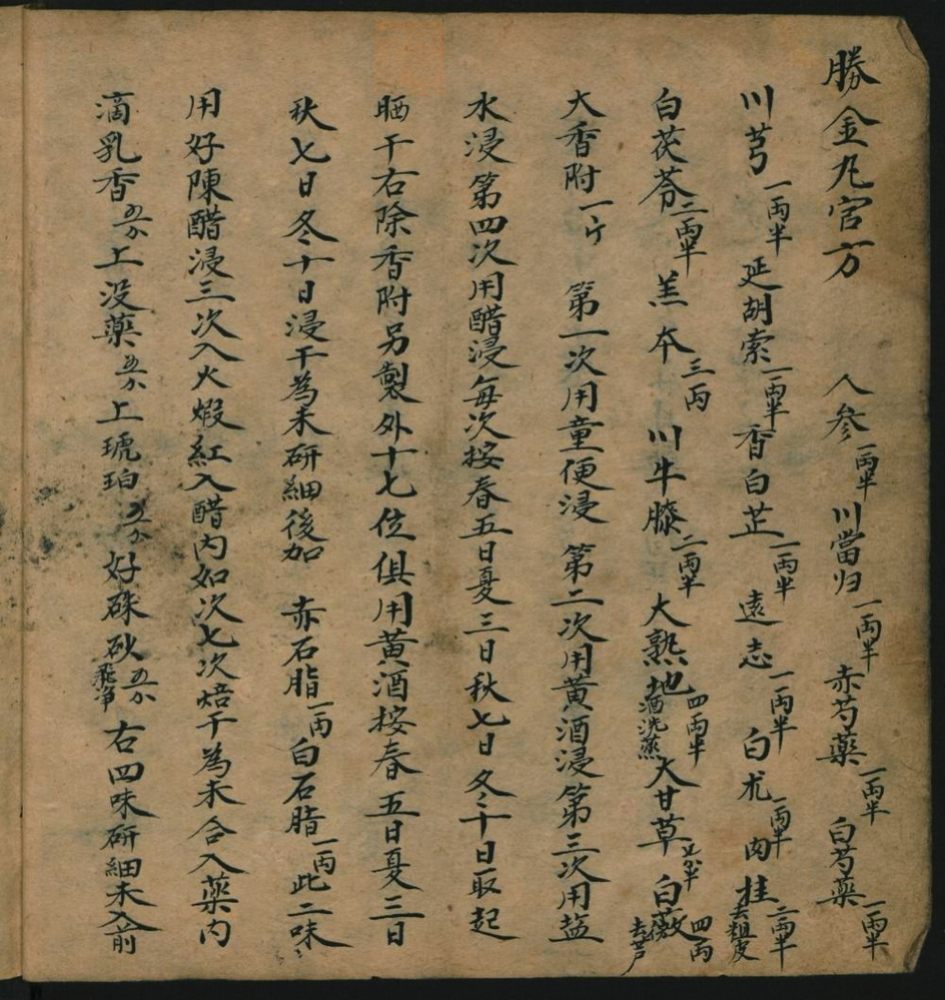 勝金丸官方　人參一兩半 川當归一兩半 赤芍藥一兩半 白芍藥一兩半
川芎一兩半 延胡索一兩半 香白芷一兩半 遠志一兩半 白朮一兩半 肉桂二兩半去粗皮
白茯苓二兩半 羔本三兩 川牛膝二兩半 大熟地四兩半酒洗蒸 大甘草半 白薇四兩去芦
大香附一斤　第一次用童便浸　第二次用黄酒浸第三次用盐
水浸第四次用醋浸每次按春五日夏三日秋七日冬十日取起
晒干右除香附另製外十七位俱用黄酒按春五日夏三日
秋七日冬十日浸干為末研細後加　赤石脂一兩白石脂一兩此二味
用好陳醋浸三次入火煆紅入醋内如次七次焙干為末合入藥内
滴乳香五分 上没藥五分 上琥珀五分 好硃砂五分飛净 右四味研細末入前